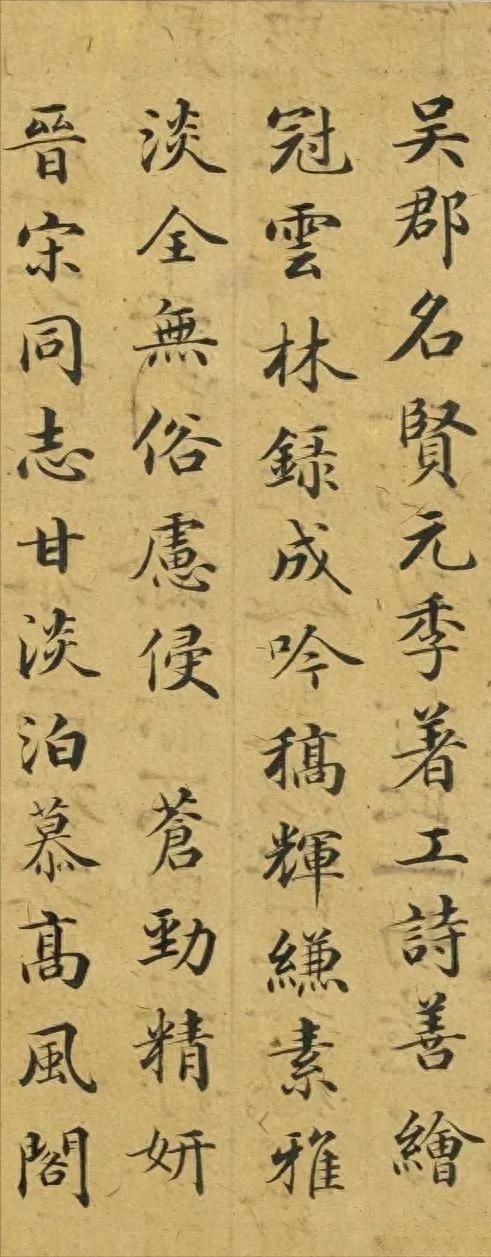 吳郡名賢元季著工詩善繪
冠雲林録成吟稿輝縑素雅
淡全無俗慮侵 蒼勁精妍
晉宋同志甘淡泊慕高風閣